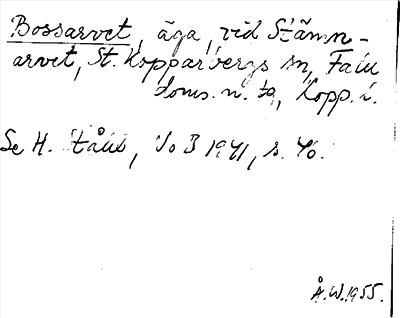 Bossarvet, äga, vid Stämn-
arvet, St. Kopparbergs sn, Falu
doms. n. tg, Kopp. l.
Se H. Ståhl, NoB 1941, s. 40.
Å.W. 1955.